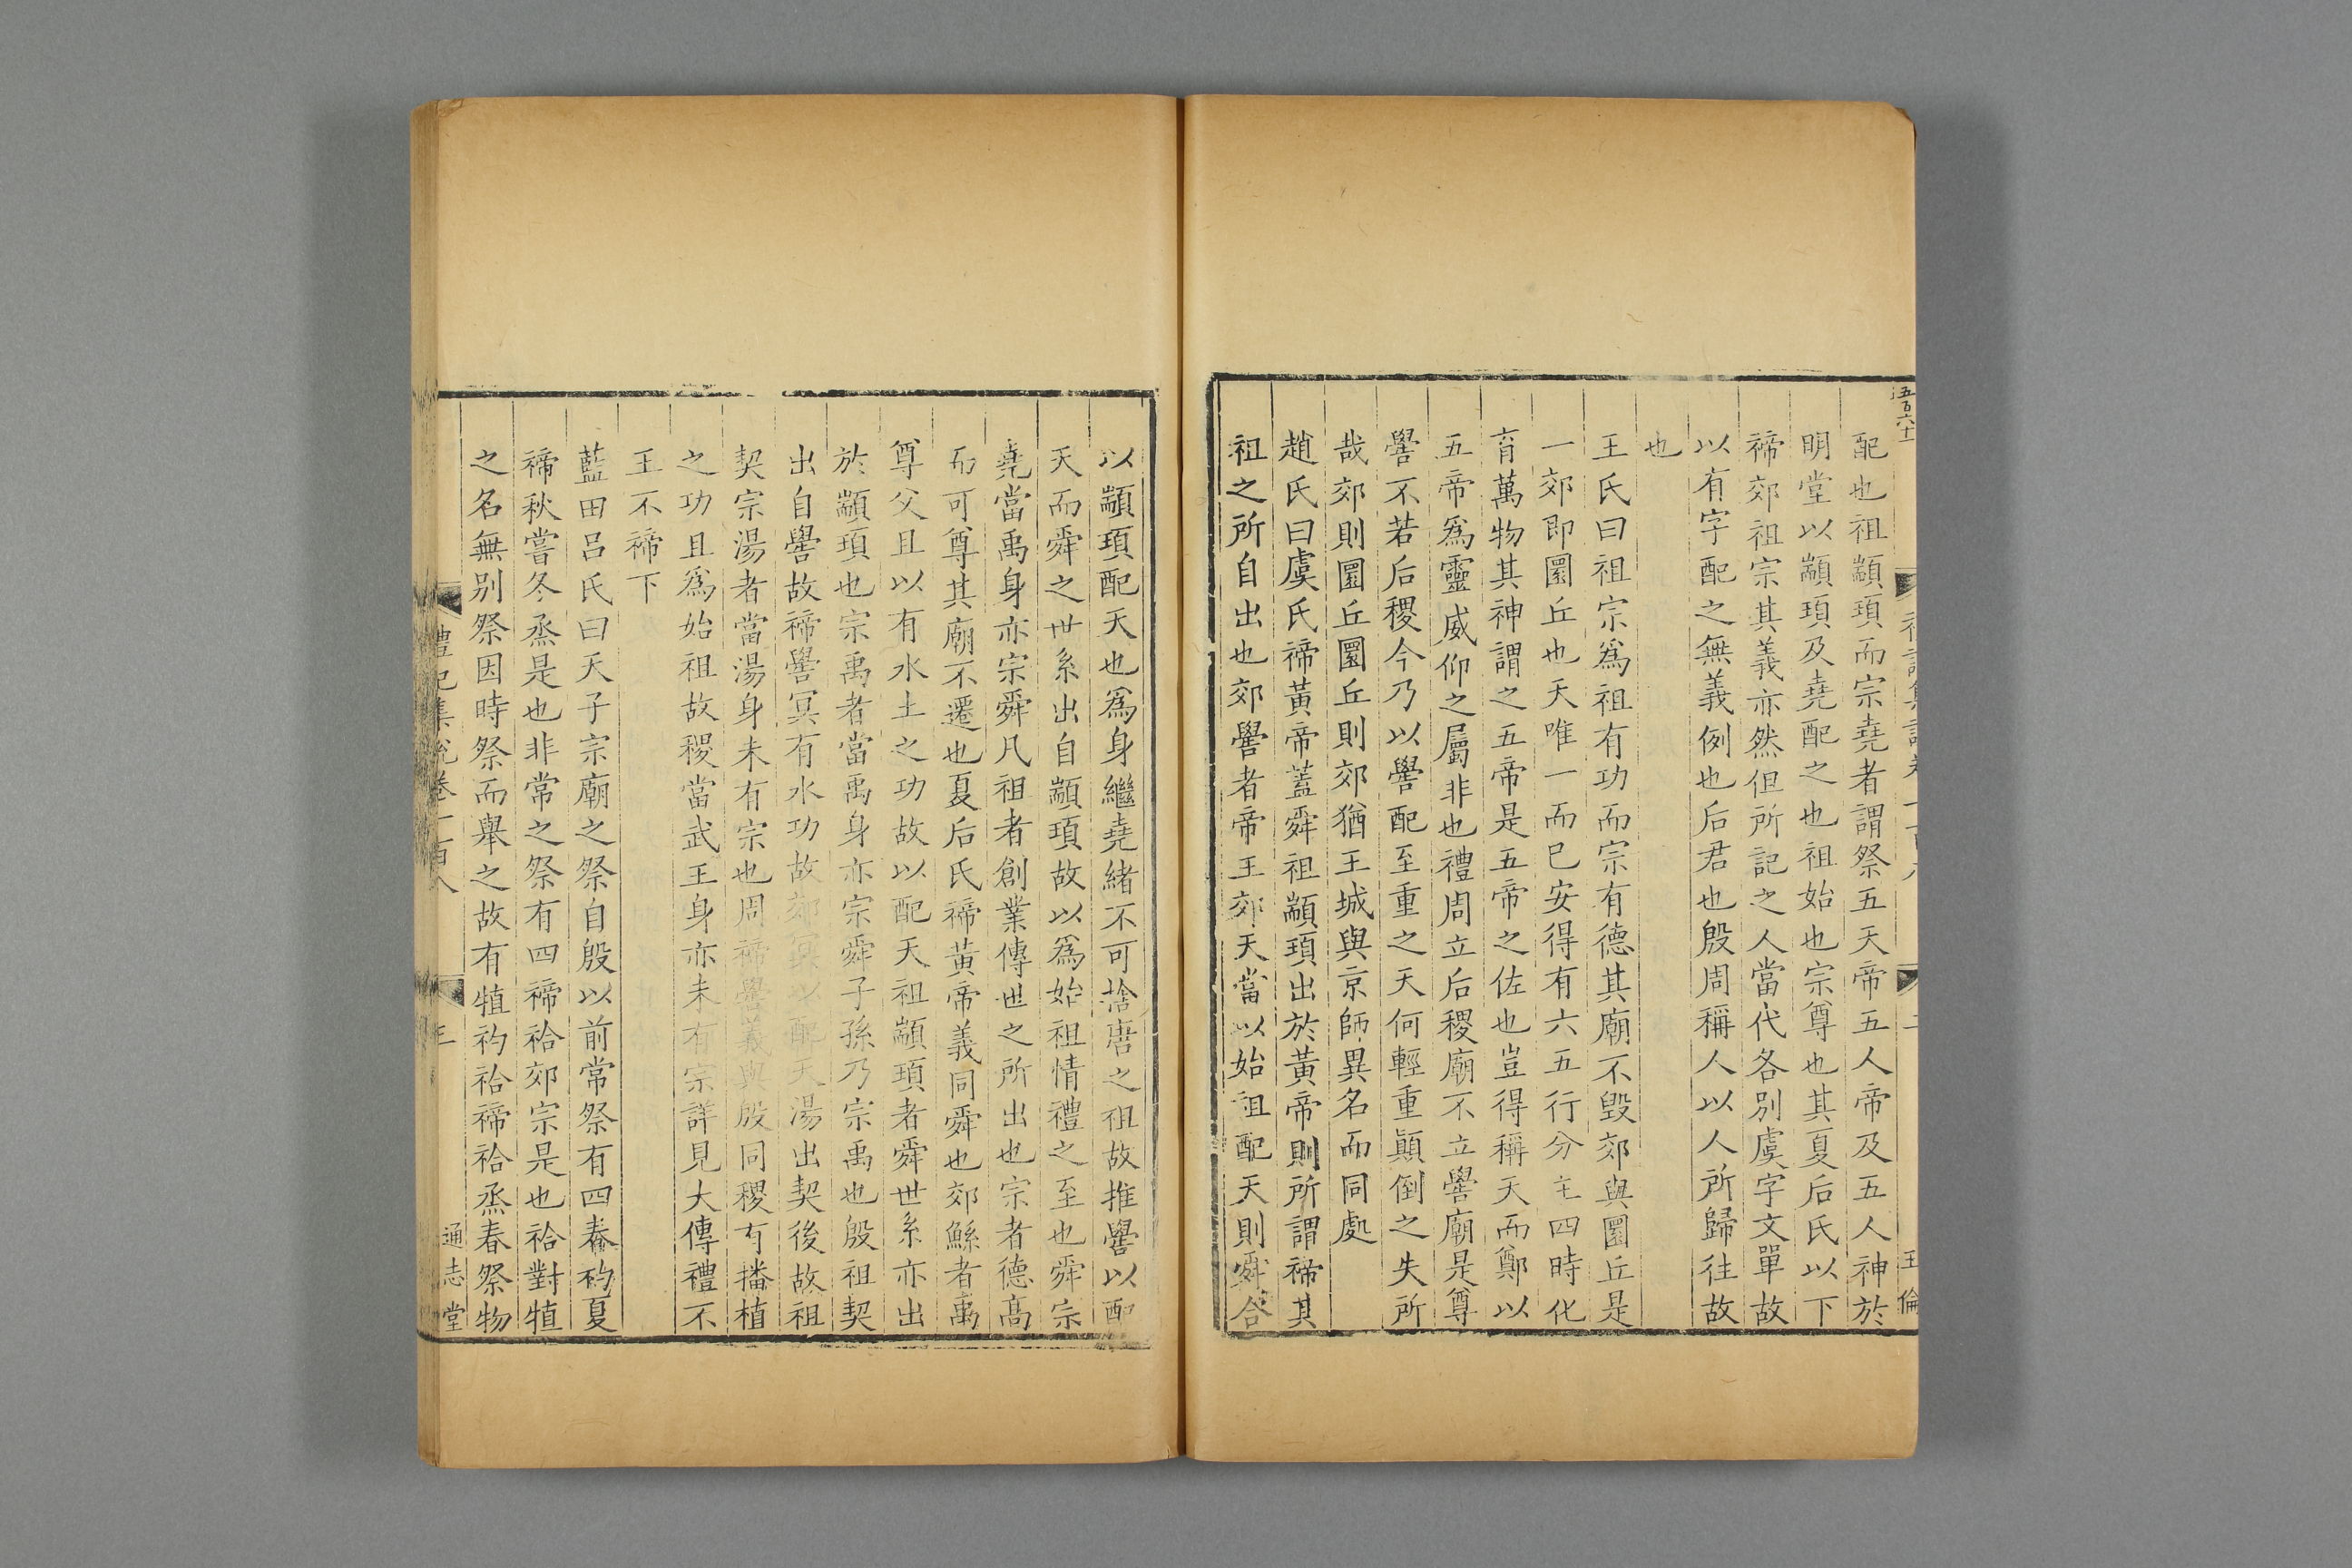 五百六十一
配也祖顓頊而宗堯者謂祭五天帝五人帝及五人神於
明堂以顓頊及堯配之也祖始也宗尊也其夏后氏以下
禘郊祖宗其義亦然但所記之人當代各別虞字文單故
以有字配之無義例也后君也殷周稱人以人所歸往故
也
王氏曰祖宗爲祖有功而宗有德其廟不毀郊與圜丘是
一郊即圜丘也天唯一而已安得有六五行分主四時化
育萬物其神謂之五帝是五帝之佐也豈得稱天而鄭以
五帝爲靈威仰之屬非也禮周立后稷廟不立嚳廟是尊
嚳不若后稷今乃以嚳配至重之天何輕重顚倒之失所
哉郊則圜丘圜丘則郊猶王城與京師異名而同處
趙氏曰虞氏禘黃帝蓋舜祖顓頊出於黃帝則所謂禘其
祖之所自出也郊嚳者帝王郊天當以始祖配天則舜合
以顓頊配天也爲身繼堯緒不可捨唐之祖故推嚳以配
天而舜之世系出自顓頊故以爲始祖情禮之至也舜宗
堯當禹身亦宗舜凡祖者創業傳世之所出也宗者德高
而可尊其廟不遷也夏后氏禘黃帝義同舜也郊鯀者禹
尊父且以有水土之功故以配天祖顓頊者舜世系亦出
於顓頊也宗禹者當禹身亦宗舜子孫乃宗禹也殷祖契
出自嚳故禘嚳冥有水功故郊冥以配天湯出契後故祖
契宗湯者當湯身未有宗也周禘嚳義與殷同稷有播植
之功且爲始祖故稷當武王身亦未有宗詳見大傳禮不
王不禘下
藍田呂氏曰天子宗廟之祭自殷以前常祭有四春礿夏
禘秋嘗冬烝是也非常之祭有四禘祫郊宗是也祫對犆
之名無別祭因時祭而舉之故有犆礿祫禘祫烝春祭物
禮記集說卷一百八
三
通志堂
王倫